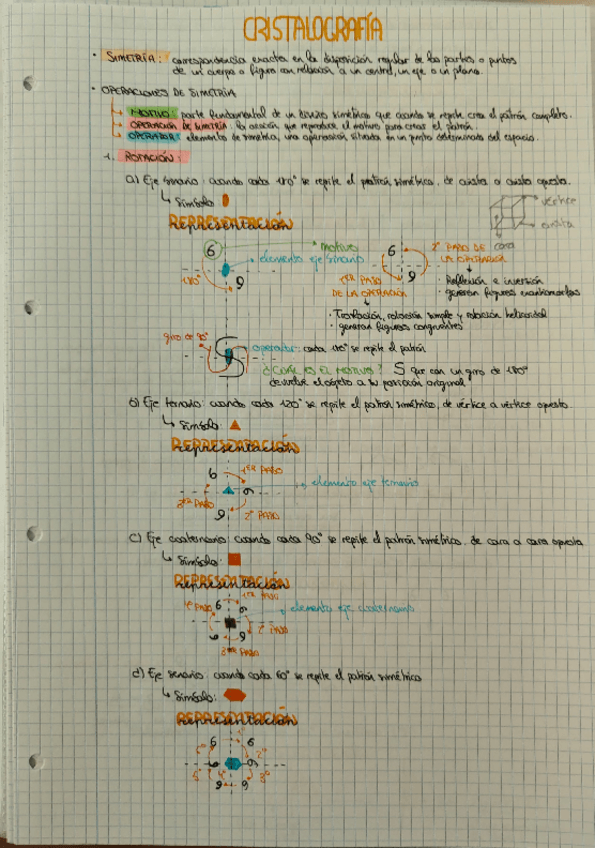 CRISTALOGRAFÍA
· SIMETRÍA: correspondencia exacta en la disposición regular de las partes o puntos
de un cuerpo o figura con relación a un centro, un eje o un plano.
· OPERACIONES DE SIMETRÍA
MOTIVO: parte fundamental de un diseño simétrico que cuando se repite crea el patrón completo.
OPERACIÓN DE SIMETRÍA: la acción que reproduce el motivo para crear el patrón.
OPERADOR: elemento de simetría, una operación situada en un punto determinado del espacio.
1. ROTACIÓN:
a) Eje binario: cuando cada 180° se repite el patrón simétrico, de arista a arista opuesta.
↳ Símbolo
vértice
arista
cara
REPRESENTACIÓN
6
motivo
elemento eje binario
180°
6
6
6
2° PASO DE
LA OPERACIÓN
1ER PASO
DE LA OPERACIÓN
· Reflexión e inversión
· generan figuras enantiomorfas
· Traslación, rotación simple y rotación helicoidal
· generan figuras congruentes
giro de 90°
operador: cada 180° se repite el patrón
¿CUÁL ES EL MOTIVO? S que con un giro de 180°
devuelve el objeto a su posición original
b) Eje ternario: cuando cada 120° se repite el patrón simétrico, de vértice a vértice opuesto.
↳ Símbolo:
REPRESENTACIÓN
6
1ER PASO
elemento eje ternario
3ER PASO
6
6
2° PASO
c) Eje cuaternario: cuando cada 90° se repite el patrón simétrico, de cara a cara opuesta
↳ Símbolo:
REPRESENTACIÓN
1ER PASO
4° PASO
6
6
elemento eje cuaternario
6
6
2° PASO
3ER PASO
d) Eje senario: cuando cada 60° se repite el patrón simétrico
↳ Símbolo:
REPRESENTACIÓN
1°
6
6
2°
6
6
5°
4°
3°
6
6